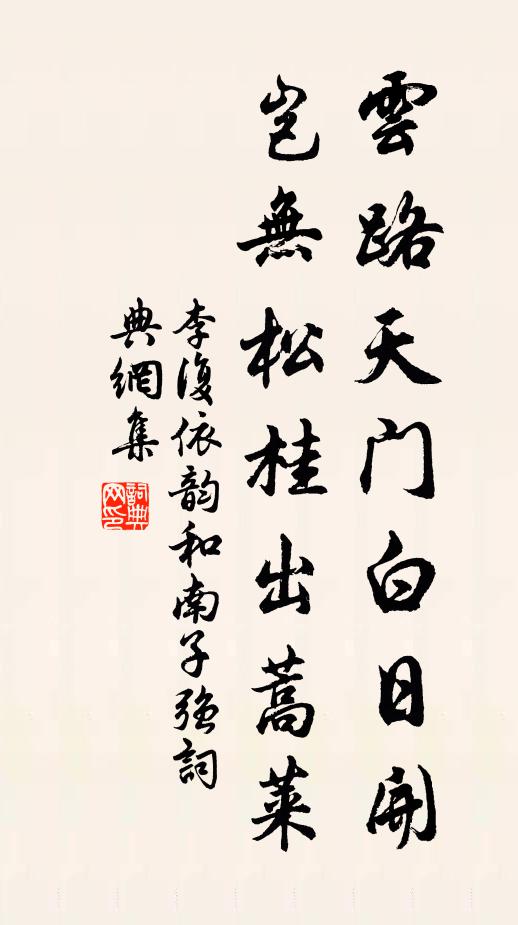 雲路天门白日開
豈無松桂出蒿萊
李復依韵和南子强詞
典網集
詞典
网印